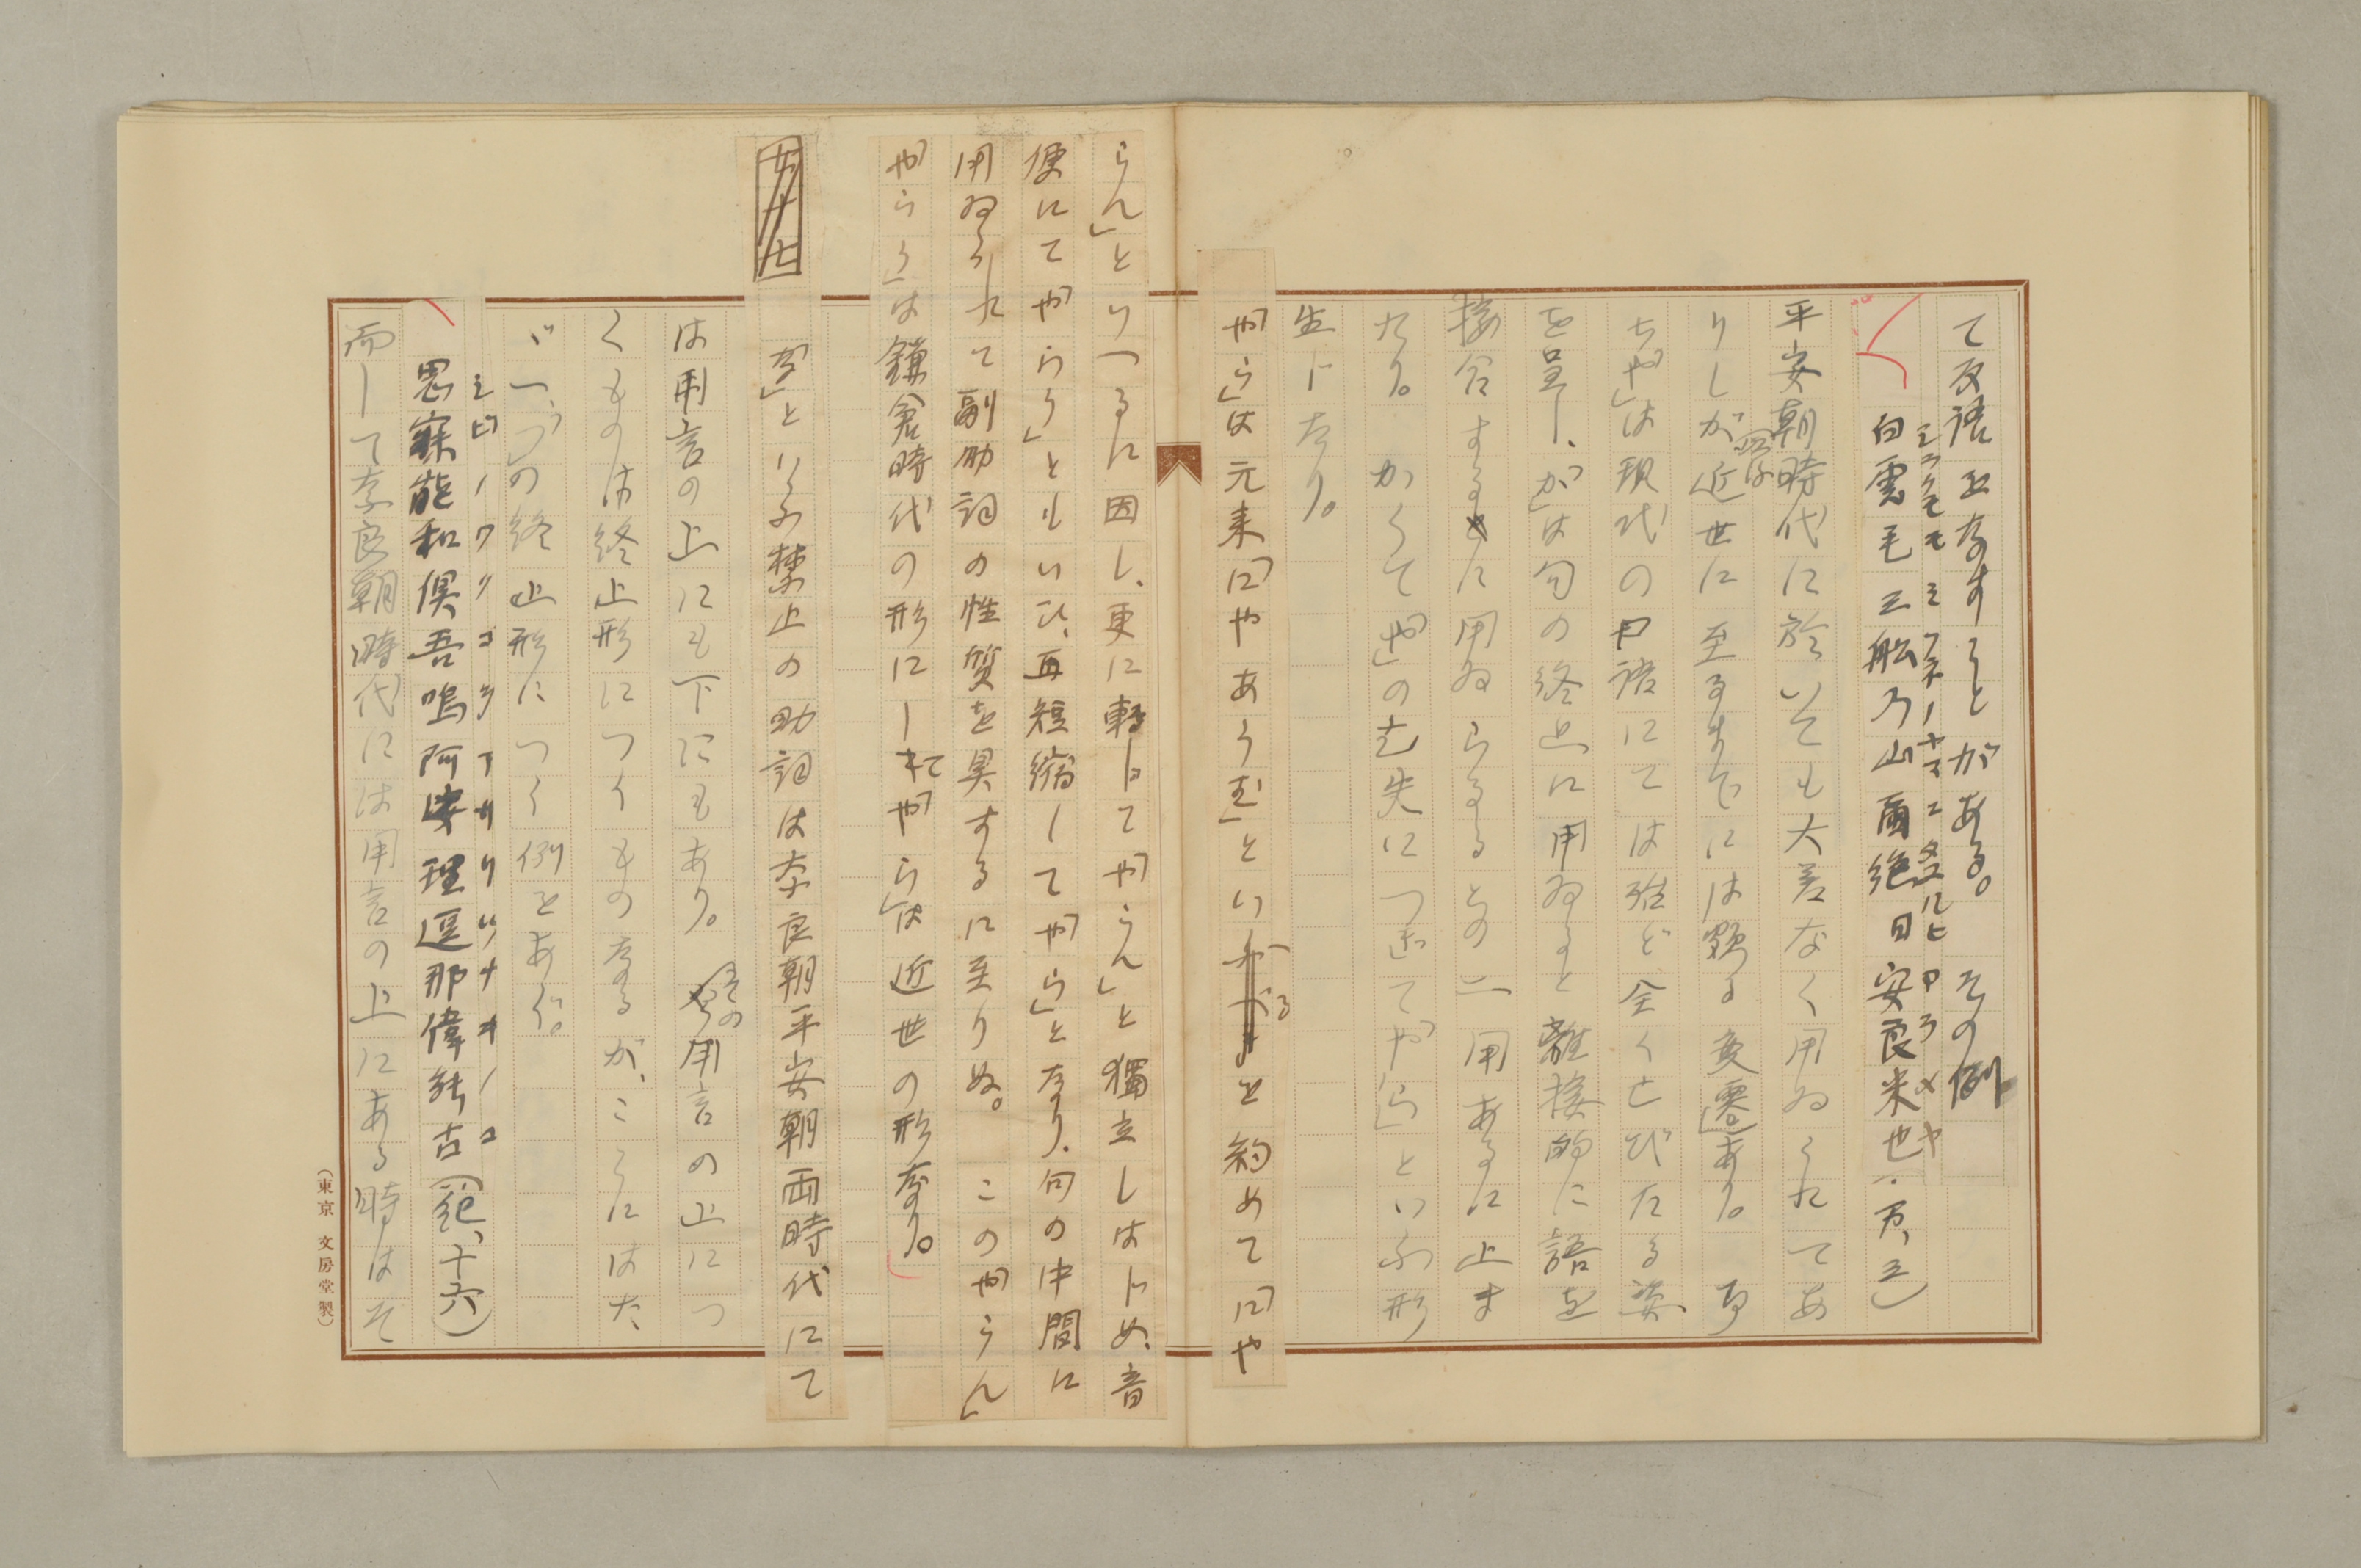 て反語をなすことがある。その例
シラクモモミフネノヤマニタユルヒアラメヤ
白雲毛三船乃山爾絶日安良米也(万、三)
平安朝時代に於いても大差なく用ゐられてあ
りしが近世に至るまでには頗る変遷あり。
ちや」は現代の口語にては殆ど全く亡びたる姿
を呈し、「か」は句の終止に用ゐると離接的に語を
接合するに用ゐらるるとの二用あるに止ま
たり。かくて「や」の亡失につれて「やら」といふ形
生ドたり。
「やら」は元来「にやあらむ」といへるを約めて「にや
らん」といへるに因し、更に転ドて「やらん」と獨立しはドめ、音
便にて「やらう」ともいひ、再短縮して「やら」となり、句の中間に
用ゐられて副助詞の性質を具するに至りぬ。この「やらん」
「やらう」は鎌倉時代の形にして「やら」は近世の形なり。
「な」といふ禁止の助詞は奈良朝平安朝両時代にて
は用言の上にも下にもあり。その用言の上につ
くものは終止形につくものなるが、ここにはた
ゞ一、二の終止形につく例をあぐ。
シビノワクゴヲアサリヅナヰノコ
思寐能和倶吾嗚阿娑理逗那偉能古(紀、十六)
而して奈良朝時代には用言の上にある時はそ
(東京 文房堂製)